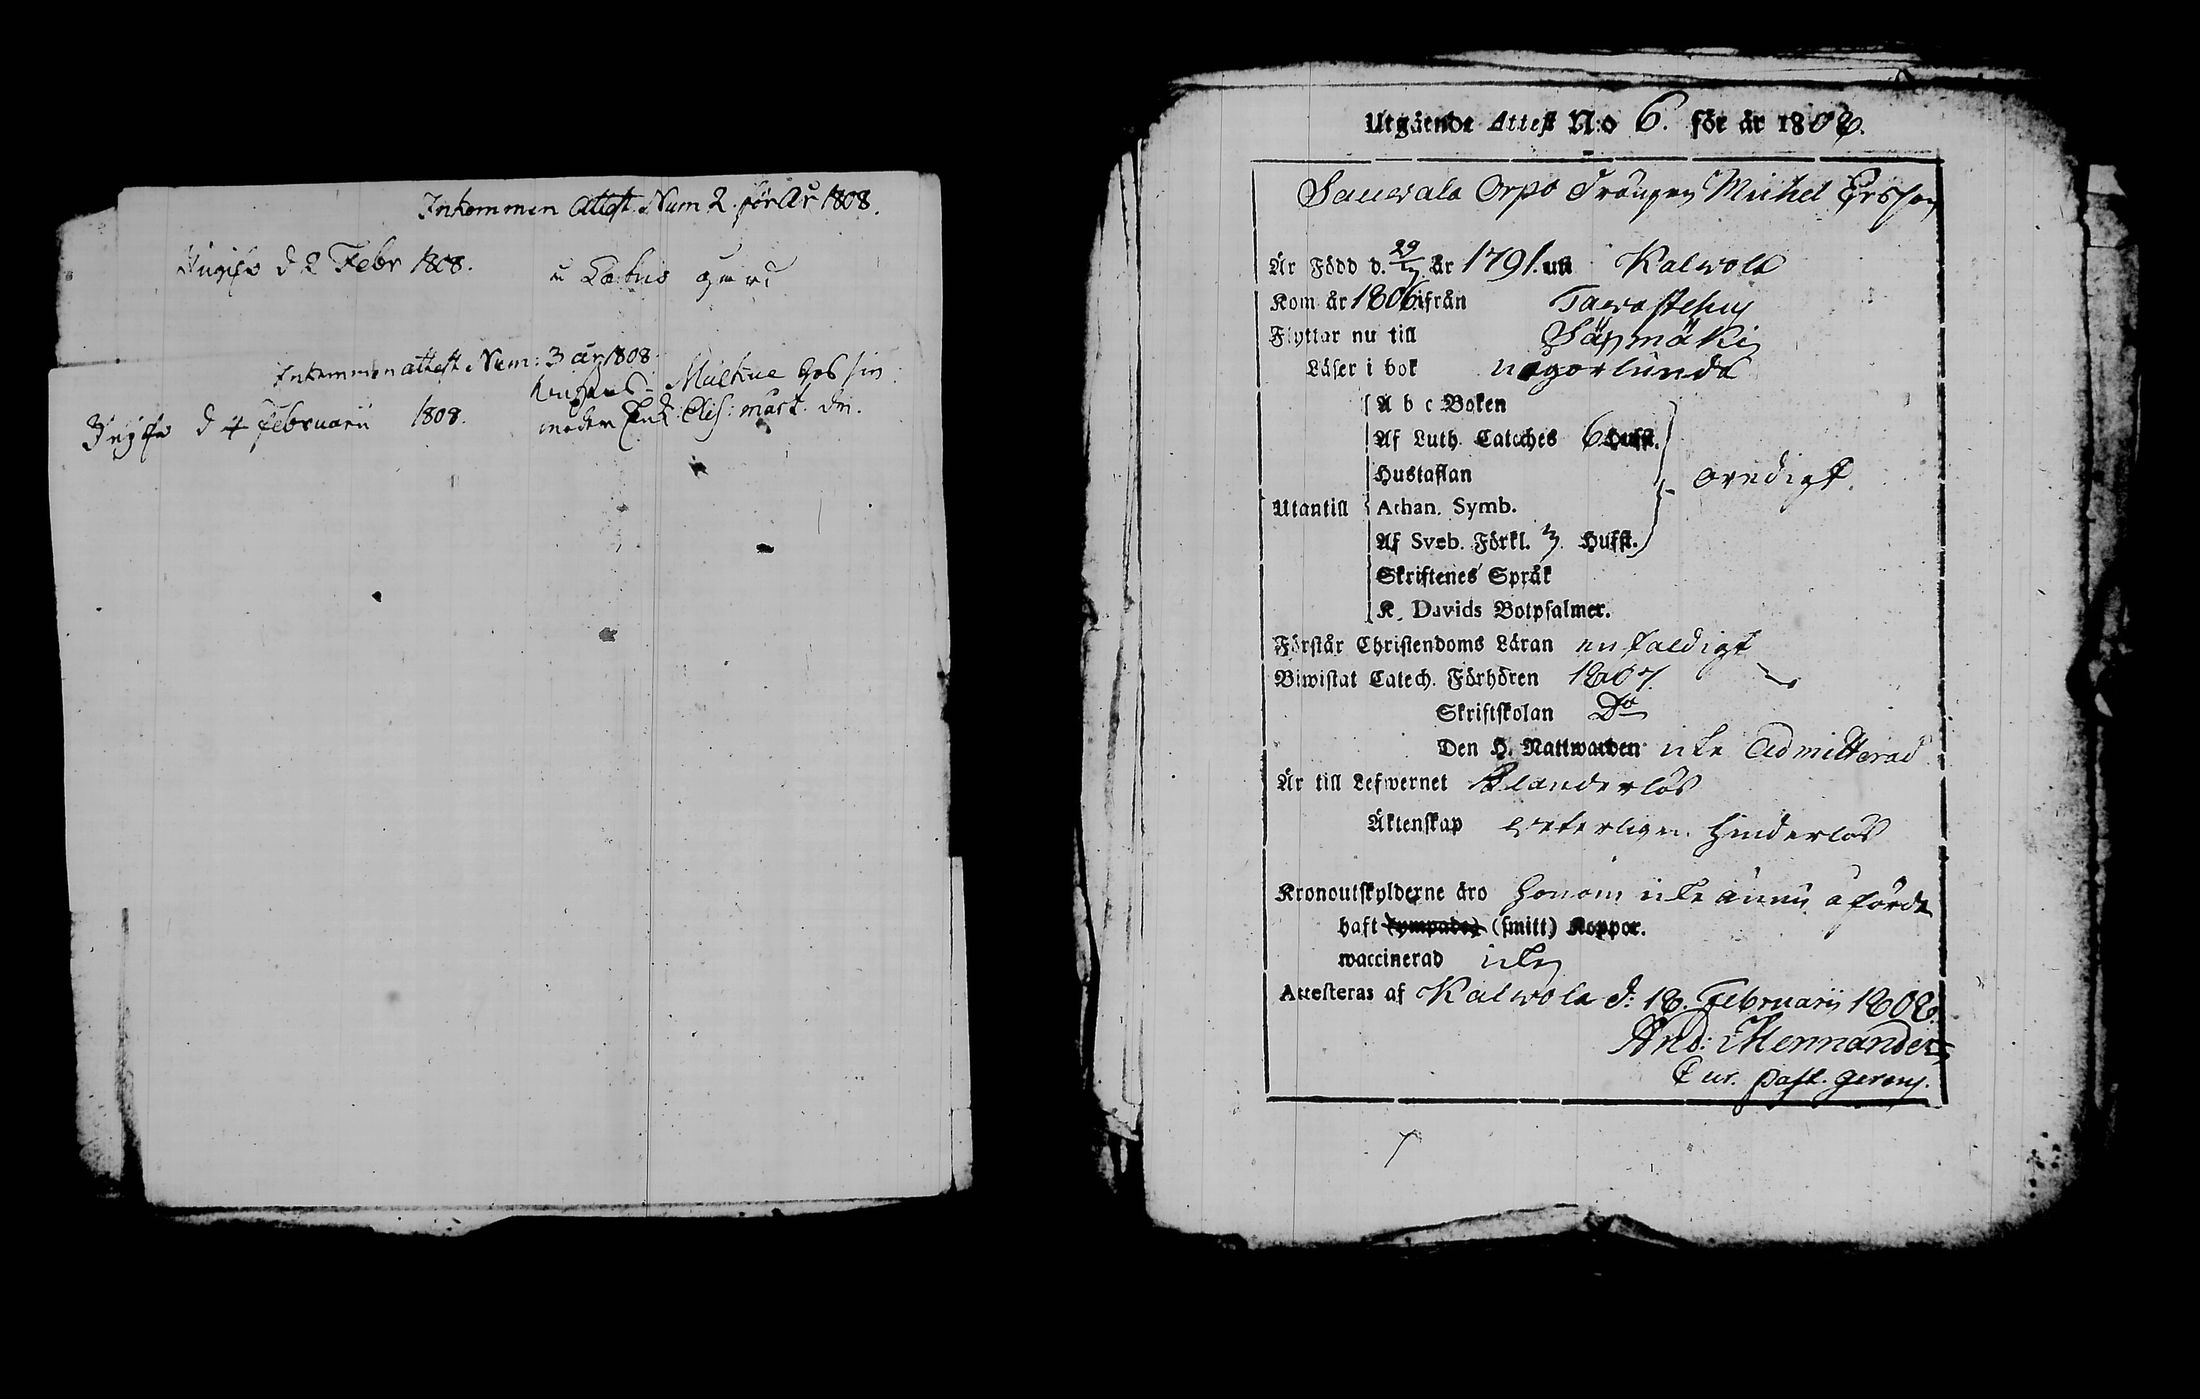 Inkommen attest Num 2. för År 1808.
d 2 Febr 1808.
Inkommen attest Num: 3 år 1808.
Mulkue hos sin
d 4 Februarii 1808.
modern Enk: Elis: mårt. dr.
Utgående Attest N:o 6. för år 1808.
Sauwala Orpo Drängen Michel Ersson
Är Född d. 29/7 år 1791. uti Kalwola
Kom år 1806 ifrån Tawastehus
Flyttar nu till Säxmäki
Läser i bok någorlunda
A b c Boken
Af Luth. Cateches 6 Hufst.
Hustaflan
Utantill Athan. Symb.
oredigt.
Af Sveb. Förkl. 3. Hufst.
Skriftenes Språk
K. Davids Botpsalmer.
Förstår Christendoms Läran enfaldigt
Biwistat Catech. Förhören 1807.
Skriftskolan Do
Den H. Nattwarden icke Admitterad
Är till Lefwernet klanderlös
Äktenskap weterligen hinderlös
Kronoutskylderne äro honom icke ännu åförde
haft (ympade) (smitt) Koppor.
waccinerad icke
Attesteras af Kalwola d: 18. Februarii 1808.
And: Mennander
Cur. past. gerens.